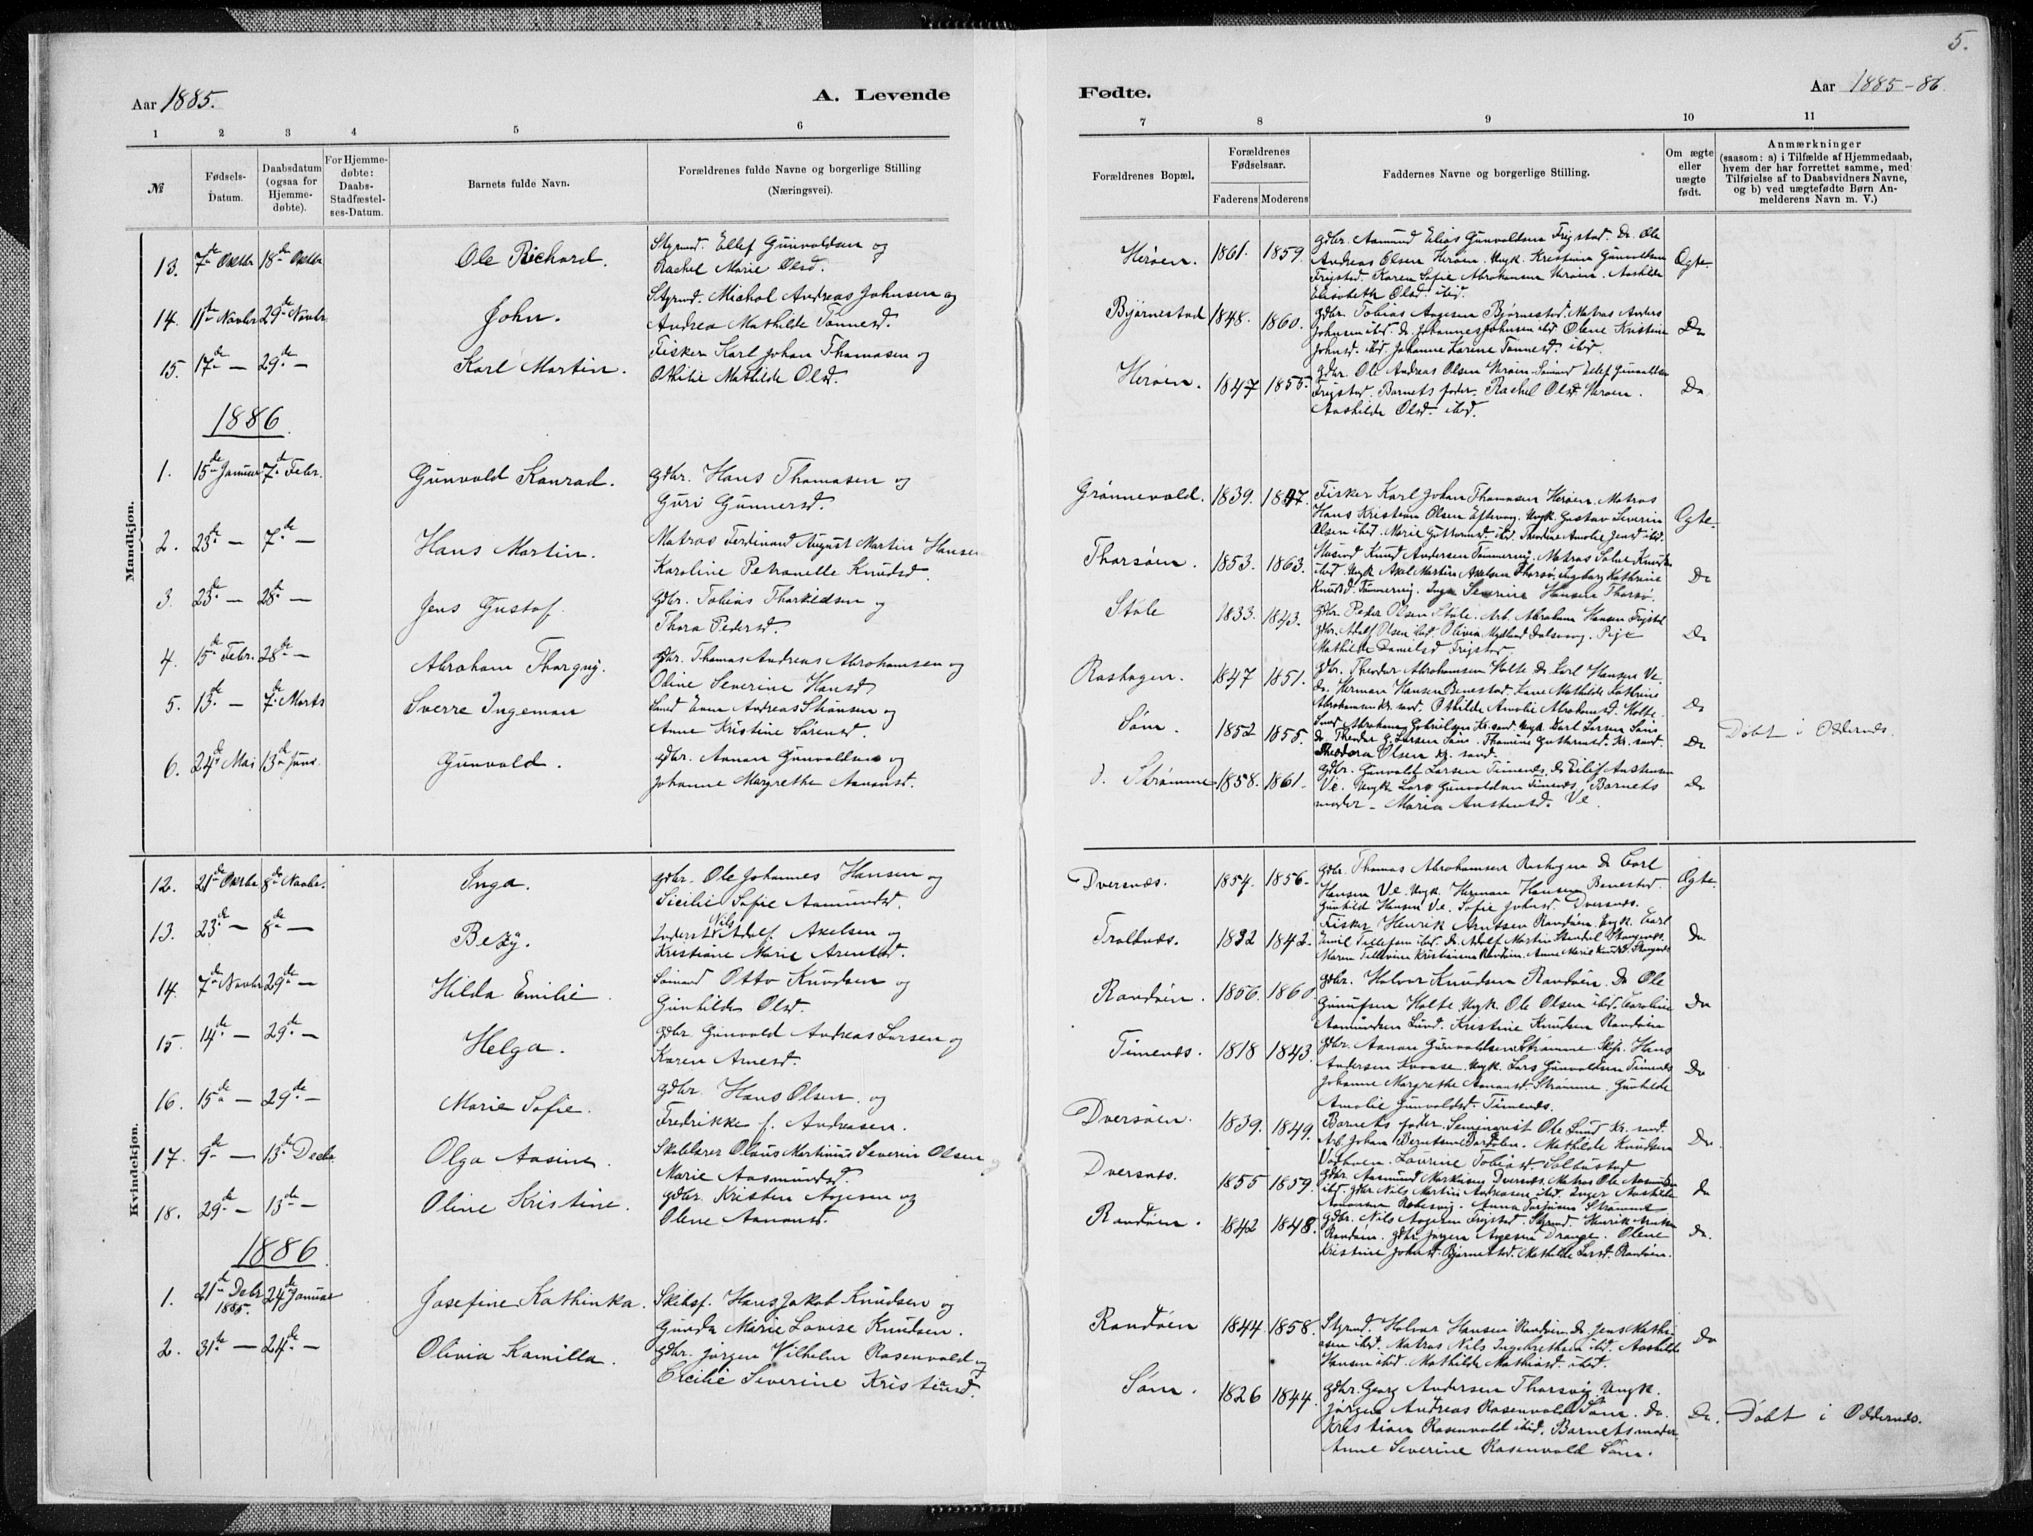 5.
Aar 1885.
A. Levende
Fødte.
Aar 1885-86.
1 2 3 4 5 6 7 8 9 10 11
№
Fødsels-
Datum.
Daabsdatum
(ogsaa for
Hjemme-
døbte).
For Hjemme-
døbte:
Daabs-
Stadfæstel-
ses-Datum.
Barnets fulde Navn.
Forældrenes fulde Navne og borgerlige Stilling
(Næringsvei).
Forældrenes Bopæl.
Forældrenes
Fødselsaar.
Faderens Moderens
Faddernes Navne og borgerlige Stilling.
Om ægte
eller
uægte
født.
Anmærkninger
(saasom: a) i Tilfælde af Hjemmedaab,
hvem der har forrettet samme, med
Tilføielse af to Daabsvidners Navne,
og b) ved uægtefødte Børn An-
melderens Navn m. V.)
Mandkjøn.
13. 7de Oktbr 18de Oktbr Ole Richard.
Styrmd. Ellef Gunvaldsen og
Rachel Marie Olsd.
Herøen. 1861. 1859.
Gdbr. Aamund Elias Gunvaldsen Frigstad. Do. Ole
Andreas Olsen Herøen. Ungk. Kristine Gunvaldsen
Frigstad. Karen Sofie Abrahamsen Herøen. Aashilde
Elisabeth Olsd. ibid.
Ægte.
14. 11te Novbr 29de Novbr John.
Styrmd. Michal Andreas Johnsen og
Andrea Mathilde Tønnesd.
Bjørnestad 1848. 1860.
Gdbr. Tobias Aagesen Bjørnestad. Matros Anders
Johnsen ibid. Do Johannes Johnsen ibid Olene Kristine
Johnsd. ibid. Johanne Karine Tønnesd. ibid.
Do
15. 17de — 29de — Karl Martin.
Fisker Karl Johan Thomasen og
Othilie Mathilde Olsd.
Herøen. 1847 1855.
Gdbr. Ole Andreas Olsen Herøen. Sømand Ellef Gunvaldsen
Frigstad. Barnets fader. Rachel Olsd. Herøen.
Aashilde Olsd. ibid.
Do
1886.
1. 15de Januar 7de Febr. Gunvald Konrad.
Gdbr. Hans Thomasen og
Guri Gunnersd.
Grønnevold. 1839. 1847.
Fisker Karl Johan Thomasen Herøen. Matros
Hans Kristian Olsen Eftevaag. Ungk. Gustav Severin
Olsen ibid. Marie Guttormsd. ibid. Theodine Amalie Jensd ibid.
Ægte
2. 23de — 7de — Hans Martin.
Matros Ferdinand August Martin Hansen
Karoline Petronelle Knudsd.
Thorsøen. 1853. 1863.
Do
3. 23de — 28de — Jens Gustaf.
Gdbr. Tobias Thorkildsen og
Thora Pedersd.
Støle 1833. 1843.
Gdbr. Peder Olsen Støle. Arb. Abraham Hansen Frigstad
Gdbr. Adolf Olsen ibid. Olivia Mydland Dalsvaag. Pige
Mathilde Danielsd Frigstad.
Do
4. 15de Febr. 28de — Abraham Thorguy.
Gdbr. Thomas Andreas Abrahamsen og
Oline Severine Hansd
Roshagen. 1847 1851.
Gdbr. Theodor Abrahamsen Holte Do Carl Hansen Ve.
Do. Herman Hansen Benestad. Kone Mathilde Kathrine
Abrahamsen Kr. sand. Othilde Amalie Abrahamsd. Holte.
Do
5. 13de — 7de Marts Sverre Ingeman
Anne Kristine Sørensd.
Søm. 1852 1855.
Do Theodor G. Larsen Søm. Thomine Guttormsd. Kr. sand.
Theodora Olsen Kr. sand.
Do Døbt i Oddernæs.
6. 24de Mai 13de Juni Gunvald.
Gdbr. Aanon Gunvaldsen og
Johanne Margrethe Aanonsd.
Ø. Strømme 1858. 1861.
Gdbr. Gunvald Larsen Timenæs. Do Eilif Austensen
Ve. Ungk Lars Gunvaldsen Timenæs. Barnets
moder – Maria Austensd. Ve.
Do
Kvindekjøn.
12. 21de Oktbr 8de Novbr. Inga.
Gdbr. Ole Johannes Hansen og
Sicilie Sofie Aamundsd.
Dversnæs. 1854. 1856.
Gdbr. Thomas Abrahamsen Roshagen Do Carl
Hansen Ve. Ungk. Herman Hansen Benestad.
Gunhild Hansen Ve. Sofie Johnsd. Dversnæs.
Ægte.
13. 23de — 8de — Bezy.
Inderst Nils Adolf Axelsen og
Kristiane Marie Arentsd.
Traldnæs. 1832 1842.
Fisker Henrik Arntsen Randøen Ungk. Carl
Emil Tellefsen ibid. Do. Adolf Martin Stendel Stangenæs.
Do
14. 7de Novbr 29de — Hilda Emilie
Sømand Otto Knudsen og
Gunhilde Olsd.
Randøen. 1856. 1860
Gdbr. Halvor Knudsen Randøen. Do Ole
Gunufsen Holte Ungk. Ole Olsen ibid. Caroline
Aamundsen Lund. Kristine Knudsen Randøen
Do
15. 14de — 29de — Helga.
Gdbr. Gunvald Andreas Larsen og
Karen Arnesd.
Timenæs. 1818 1843.
Gdbr. Aanon Gunvaldsen Strømme. Skip. Hans
Andersen Kvaase. Ungk. Lars Gunvaldsen Timenæs
Johanne Margrethe Aanonsd. Strømme. Gunhilde
Amalie Gunvaldsd. Timenæs.
Do
16. 15de — 29de — Marie Sofie.
Gdbr. Hans Olsen og
Fredrikke f. Andreasen.
Dversøen. 1839. 1849.
Barnets fader. Seminarist Ole Lund Kr. sand.
Arb. Johan Berntsen Dorsølen. Mathilde Knudsen
Laurine Tobiasd. Solbustad
Do.
17. 9de — 13de Decbr Olga Aasine.
Skolelærer Olaus Martinius Severin Olsen
Marie Aasmundsd.
Dversnæs. 1855 1859.
Gdbr. Aasmund Markusen Dversnæs. Matros Ole Aasmundsen
ibid. Gdbr Nils Martin Andreasen ibid. Inger Aashilde
Do
18. 29de — 13de — Oline Kristine.
Gdbr. Kristen Aagesen og
Olene Aanonsd.
Randøen. 1842 1848.
Gdbr. Nils Aagesen Frigstad. Styrmd. Henrik Arntsen
Randøen. Gdbr. Jørgen Aagesen Drange. Olene
Kristine Johnsd. Bjørnestad. Mathilde Larsd. Randøen.
Do.
1886.
1. 21de Decbr 1885. 24de Januar Josefine Kathinka.
Skibsf. Hans Jakob Knudsen og
Gunda Marie Lovise Knudsen.
Randøen 1844 1858.
Styrmd. Halvor Hansen Randøen. Do Jens Mathi-
asen ibid. Matros Nils Ingebrethsen ibid. Aashilde
Hansen ibid. Mathilde Mathiasd. ibid.
Do
2. 31te — 24de — Olivia Kamilla.
Gdbr. Jørgen Vilhelm Rosenvold og
Cicilie Severine Kristiansd.
Søm. 1826 1844.
Gdbr. Georg Andersen Thorsvig. Ungk.
Jørgen Andreas Rosenvold Søm. Do.
Kristian Rosenvold ibid. Barnets moder
Anne Severine Rosenvold Søm.
Do. Døbt i Oddernæs.